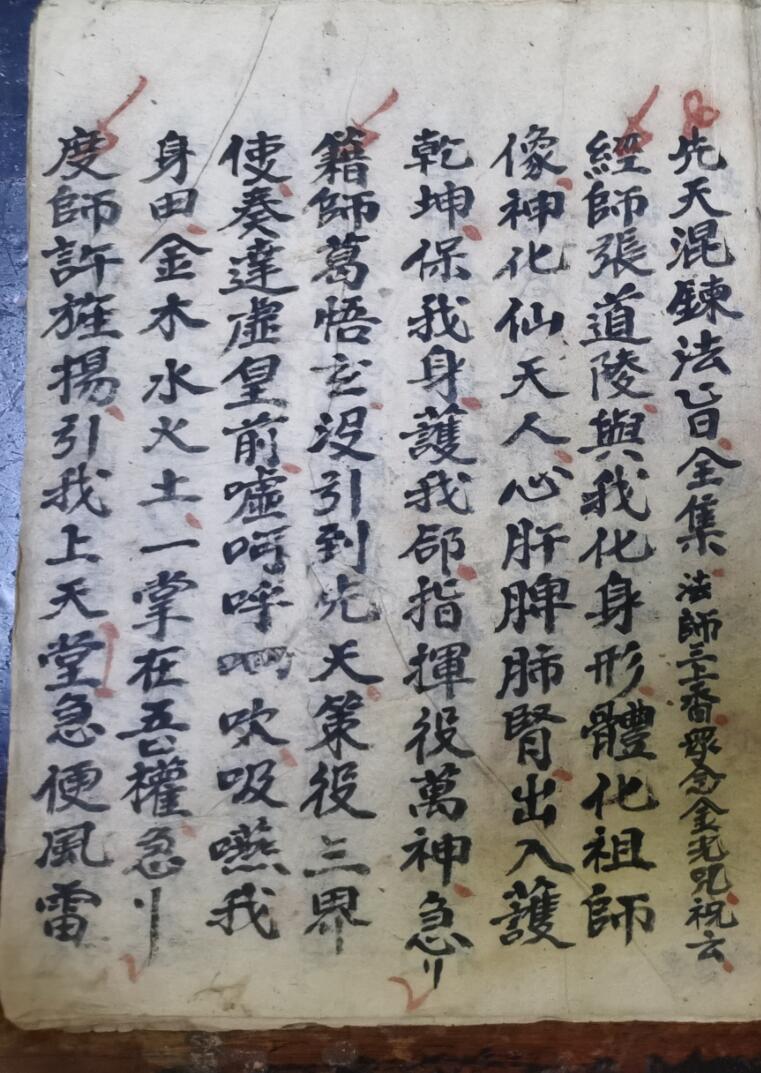 先天混鍊法旨全集 法師三上香 眾念金光咒 祝云
經師張道陵與我化身形體化祖師
像神化仙天人心肝脾肺腎出入護
乾坤保我身護我郃指揮役萬神急〃
籍師葛悟玄沒引到先天策役三界
使奏達虛皇前噓呵呼呬吹吸嚥我
身田金木水火土一掌在五權急〃
度師許旌揚引我上天堂急便風雷